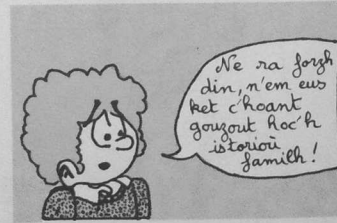 Ne ra forzh
din, n'em eus
ket c'hoant
gouzout hoc'h
istorioù
familh!